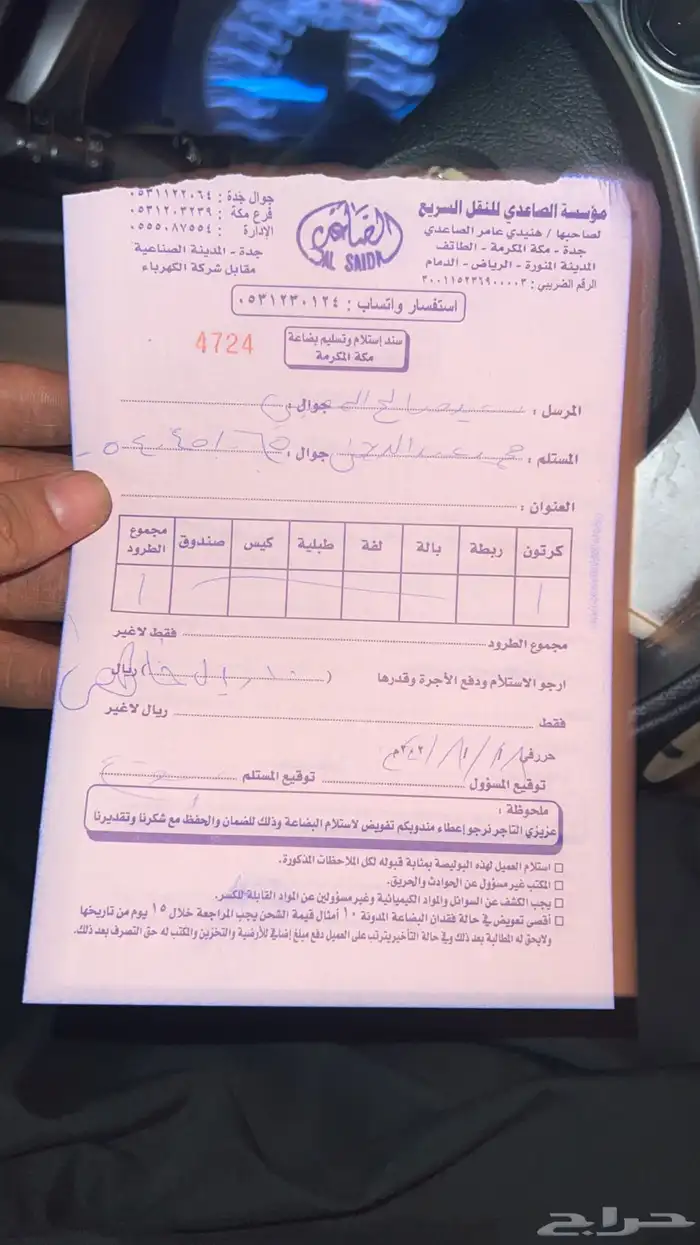 مؤسسة الصاعدي للنقل السريع
لصاحبها / هنيدي عامر الصاعدي
جدة - مكة المكرمة - الطائف
المدينة المنورة - الرياض - الدمام
الرقم الضريبي : ٣٠٠١١٥٢٣٦٩٠٠٠٠٣
الصاعدي
AL SAIDI
جوال جدة : ٠٥٣١١٢٢٠٦٤
فرع مكة : ٠٥٣١٢٠٣٢٣٩
الإدارة : ٠٥٥٥٠٨٧٥٥٤
جدة - المدينة الصناعية
مقابل شركة الكهرباء
استفسار واتساب : ٠٥٣١٢٣٠١٢٤
سند إستلام وتسليم بضاعة
مكة المكرمة
4724
المرسل : جوال :
المستلم : جوال :
العنوان :
كرتون ربطة بالة لفة طبلية كيس صندوق مجموع الطرود
١ ١
مجموع الطرود فقط لاغير
ارجو الاستلام ودفع الأجرة وقدرها ( ) ريال
فقط ريال لاغير
حرر في / / م
توقيع المسؤول توقيع المستلم
ملحوظة :
عزيزي التاجر نرجو إعطاء مندوبكم تفويض لاستلام البضاعة وذلك للضمان والحفظ مع شكرنا وتقديرنا
□ استلام العميل لهذه البوليصة بمثابة قبوله لكل الملاحظات المذكورة.
□ المكتب غير مسؤول عن الحوادث والحريق.
□ يجب الكشف عن السوائل والمواد الكيميائية وغير مسؤولين عن المواد القابلة للكسر.
□ أقصى تعويض في حالة فقدان البضاعة المدونة ١٠ أمثال قيمة الشحن يجب المراجعة خلال ١٥ يوم من تاريخها
ولايحق له المطالبة بعد ذلك وفي حالة التأخير يترتب على العميل دفع مبلغ إضافي للأرضية والتخزين والمكتب له حق التصرف بعد ذلك.
حراج